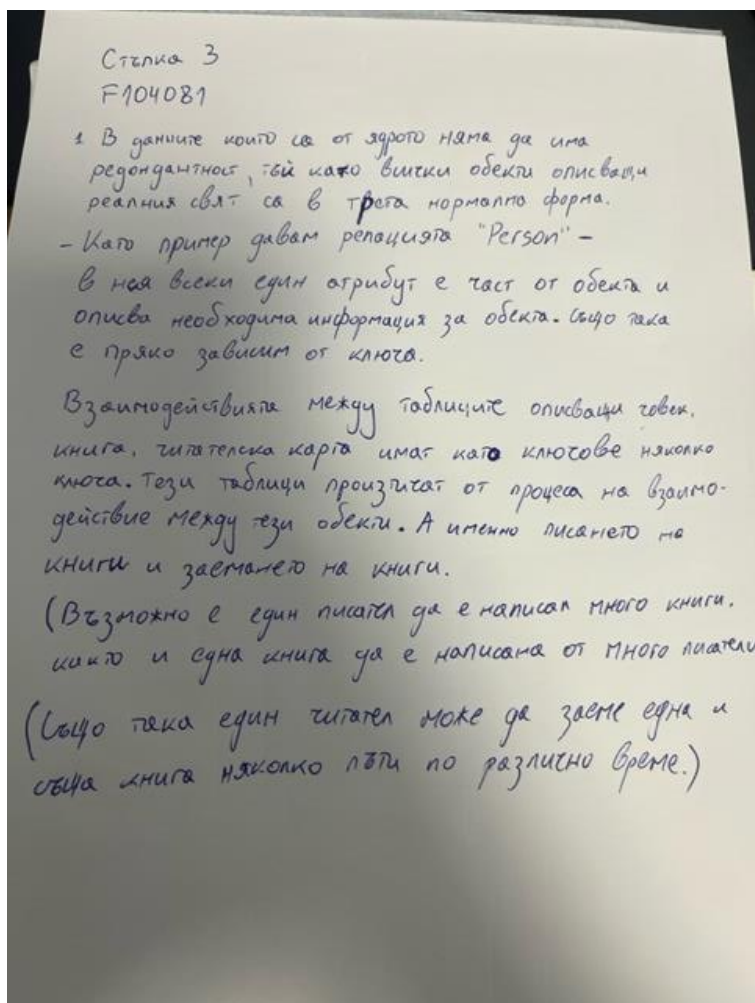 Стъпка 3
F104081
1 В данните които са от ядрото няма да има
редондантност, тъй като всички обекти описващи
реалния свят са в трета нормална форма.
- Като пример давам релацията "Person" -
в нея всеки един атрибут е част от обекта и
описва необходима информация за обекта. Също така
е пряко зависим от ключа.
Взаимодействията между таблиците описващи човек,
книга, читателска карта имат като ключове няколко
ключа. Тези таблици произтичат от процеса на взаимо-
действие между тези обекти. А именно писането на
книги и заемането на книги.
(Възможно е един писател да е написал много книги,
както и една книга да е написана от много писатели
(Също така един читател може да заеме една и
съща книга няколко пъти по различно време.)